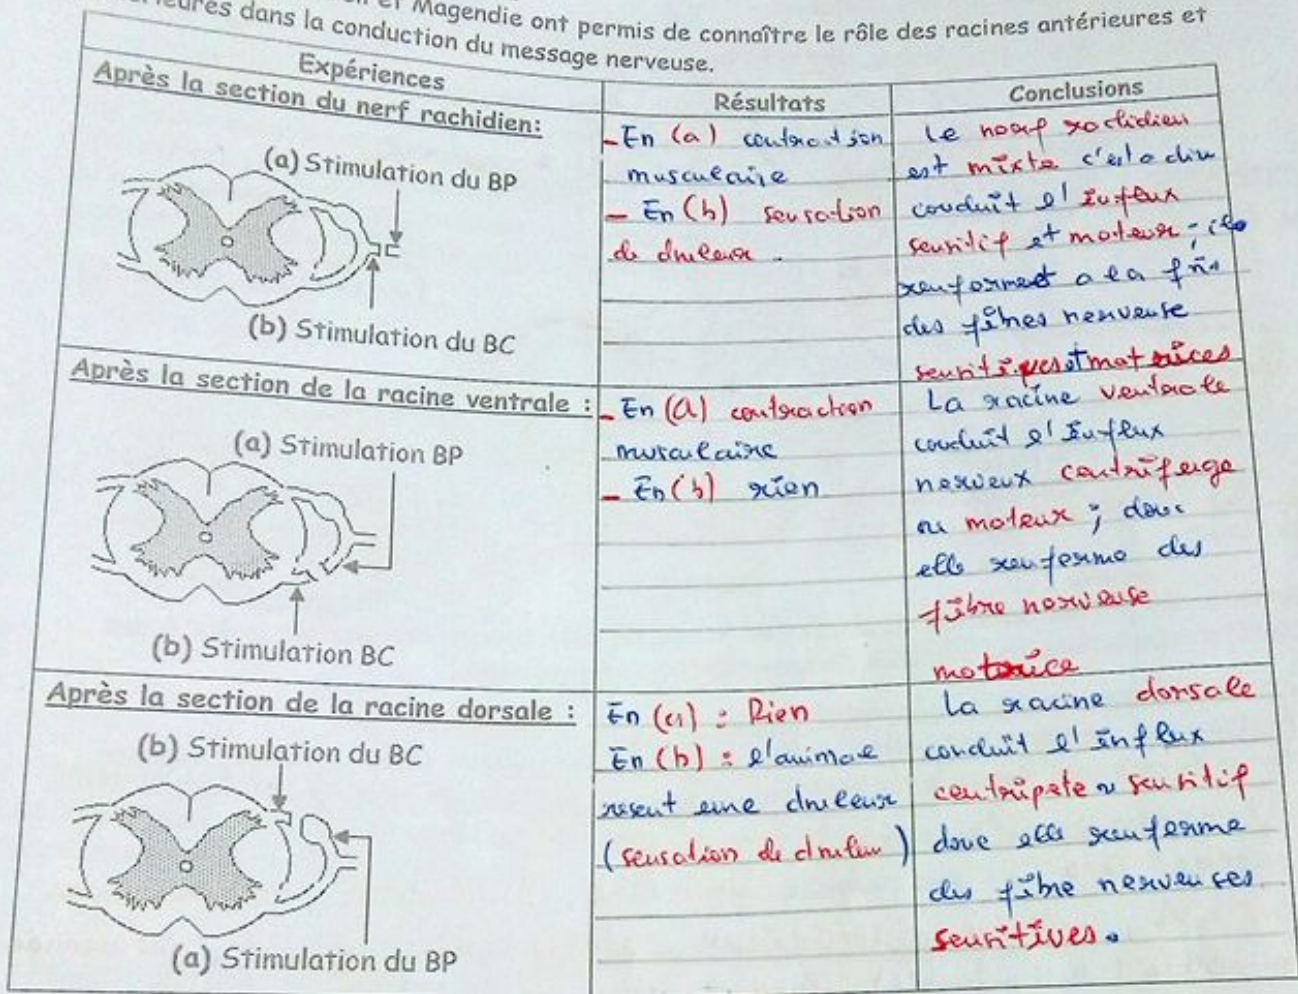 et Magendie ont permis de connaître le rôle des racines antérieures et
dans la conduction du message nerveuse.
Expériences
Résultats
Conclusions
Après la section du nerf rachidien:
(a) Stimulation du BP
(b) Stimulation du BC
- En (a) contraction
musculaire
- En (b) sensation
de douleur.
Le nerf rachidien
est mixte c'est a dire
conduit l'influx
sensitif et moteur; ils
renferment a la fois
des fibres nerveuse
sensitives et motrices
Après la section de la racine ventrale :
(a) Stimulation BP
(b) Stimulation BC
- En (a) contraction
musculaire
- En (b) rien
La racine ventrale
conduit l'influx
nerveux centrifuge
ou moteur; donc
elle renferme des
fibre nerveuse
motrice
Après la section de la racine dorsale :
(b) Stimulation du BC
(a) Stimulation du BP
En (a) : Rien
En (b) : l'animal
resent une douleur
(sensation de douleur)
La racine dorsale
conduit l'influx
centripete ou sensitif
donc elle renferme
des fibre nerveuses
sensitives.